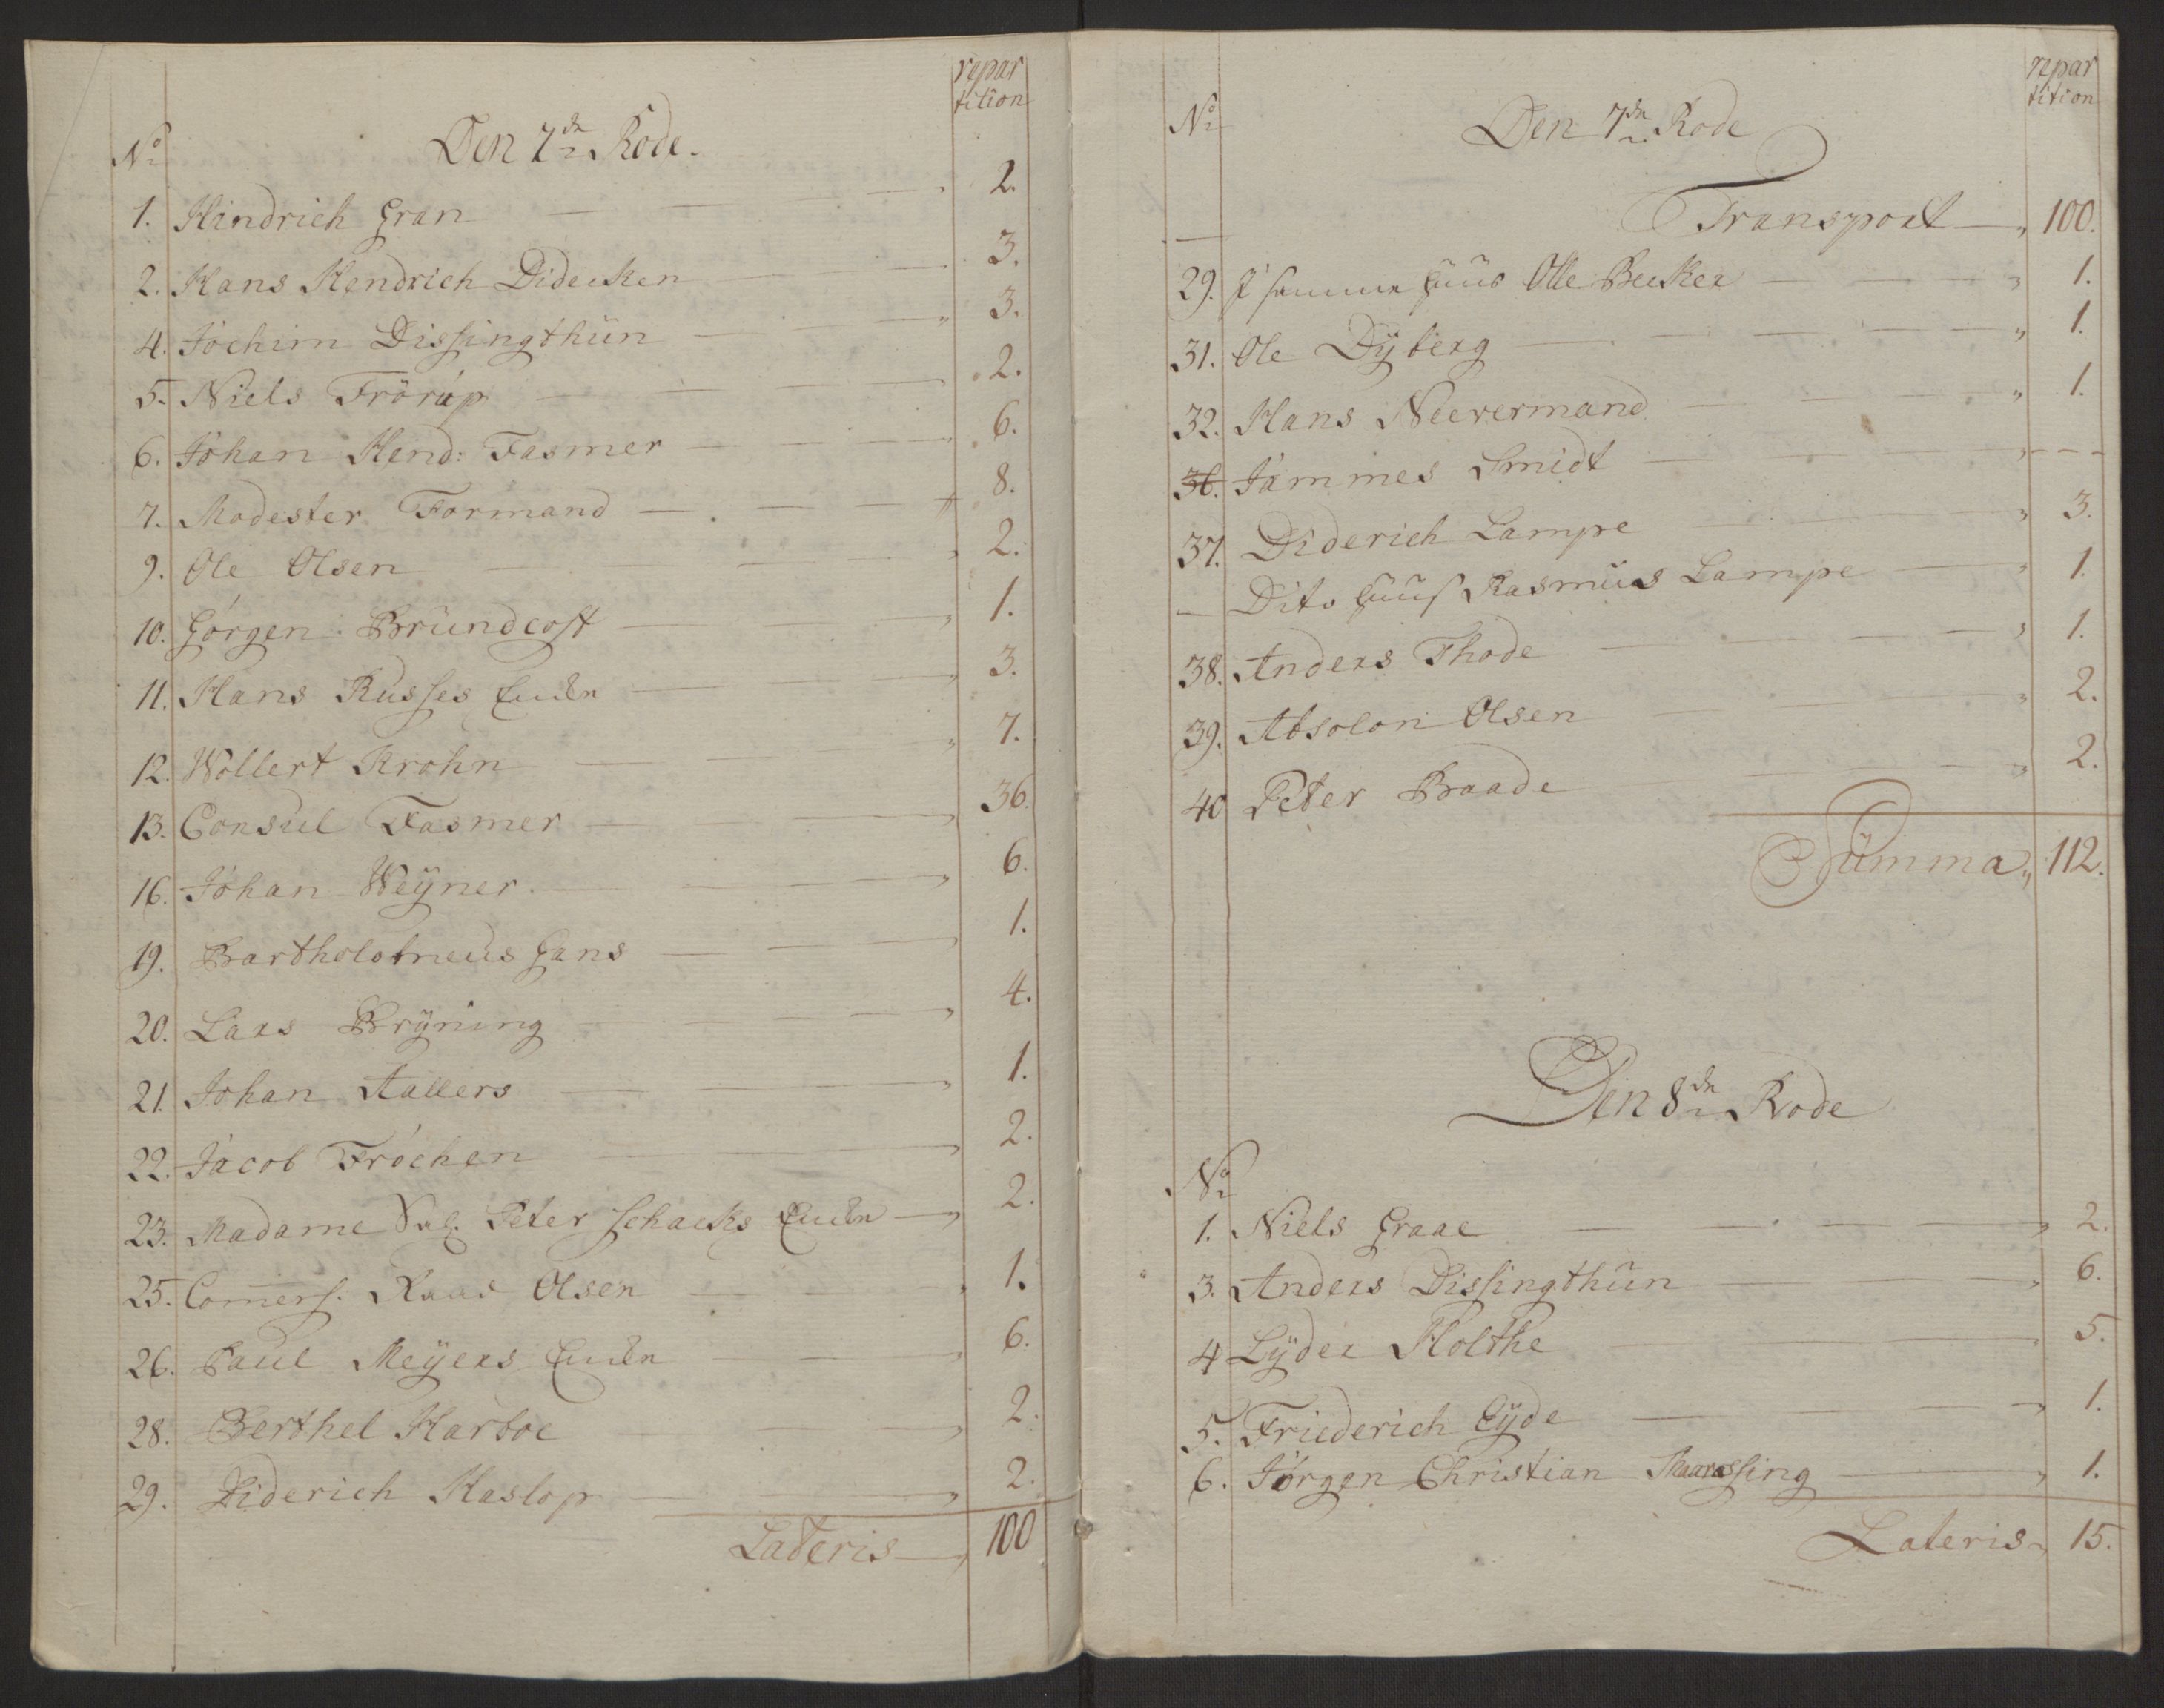 repar
tition
No Den 7de Rode.
1. Hindrich Gran 2.
2. Hans Hendrich Didecken 3.
4. Jochim Dissingthun 3.
5. Niels Frörup 2.
6. Johan Hend: Fasmer 6.
7. Modester Formand 8.
9. Ole Olsen 2.
10. Görgen Brundcost 1.
11. Hans Russes Encke 3.
12. Wollert Krohn 7.
13. Consul Fasmer 36.
16. Johan Weÿner 6.
19. Bartholomeus Gans 1.
20. Lars Brÿning 4.
21. Johan Aallers 1.
22. Jacob Fröchen 2.
23. Madame Sal. Peter Schacks Encke 2.
25. Comers. Raad Olsen 1.
26. Paul Meÿers Encke 6.
28. Berthel Harboe 2.
29. Diderich Haslop 2.
Lateris 100
repar
tition
No Den 7de Rode
Transport 100.
29. J samme Huus Olle Becker 1.
31. Ole Dÿberg 1.
32. Hans Neevermand 1.
36. Jammes Smidt - - -
37. Diderich Lampe 3.
Dito Huus Rasmus Lampe 1.
38. Anders Thode 1.
39. Absolon Olsen 2.
40 Peter Baade 2.
Summa 112.
Den 8de Rode
No
1. Niels Graae 2.
3. Anders Dissingthun 6.
4 Lÿder Holthe 5.
5. Friederich Eÿde 1.
6. Jörgen Christian 1.
Lateris 15.